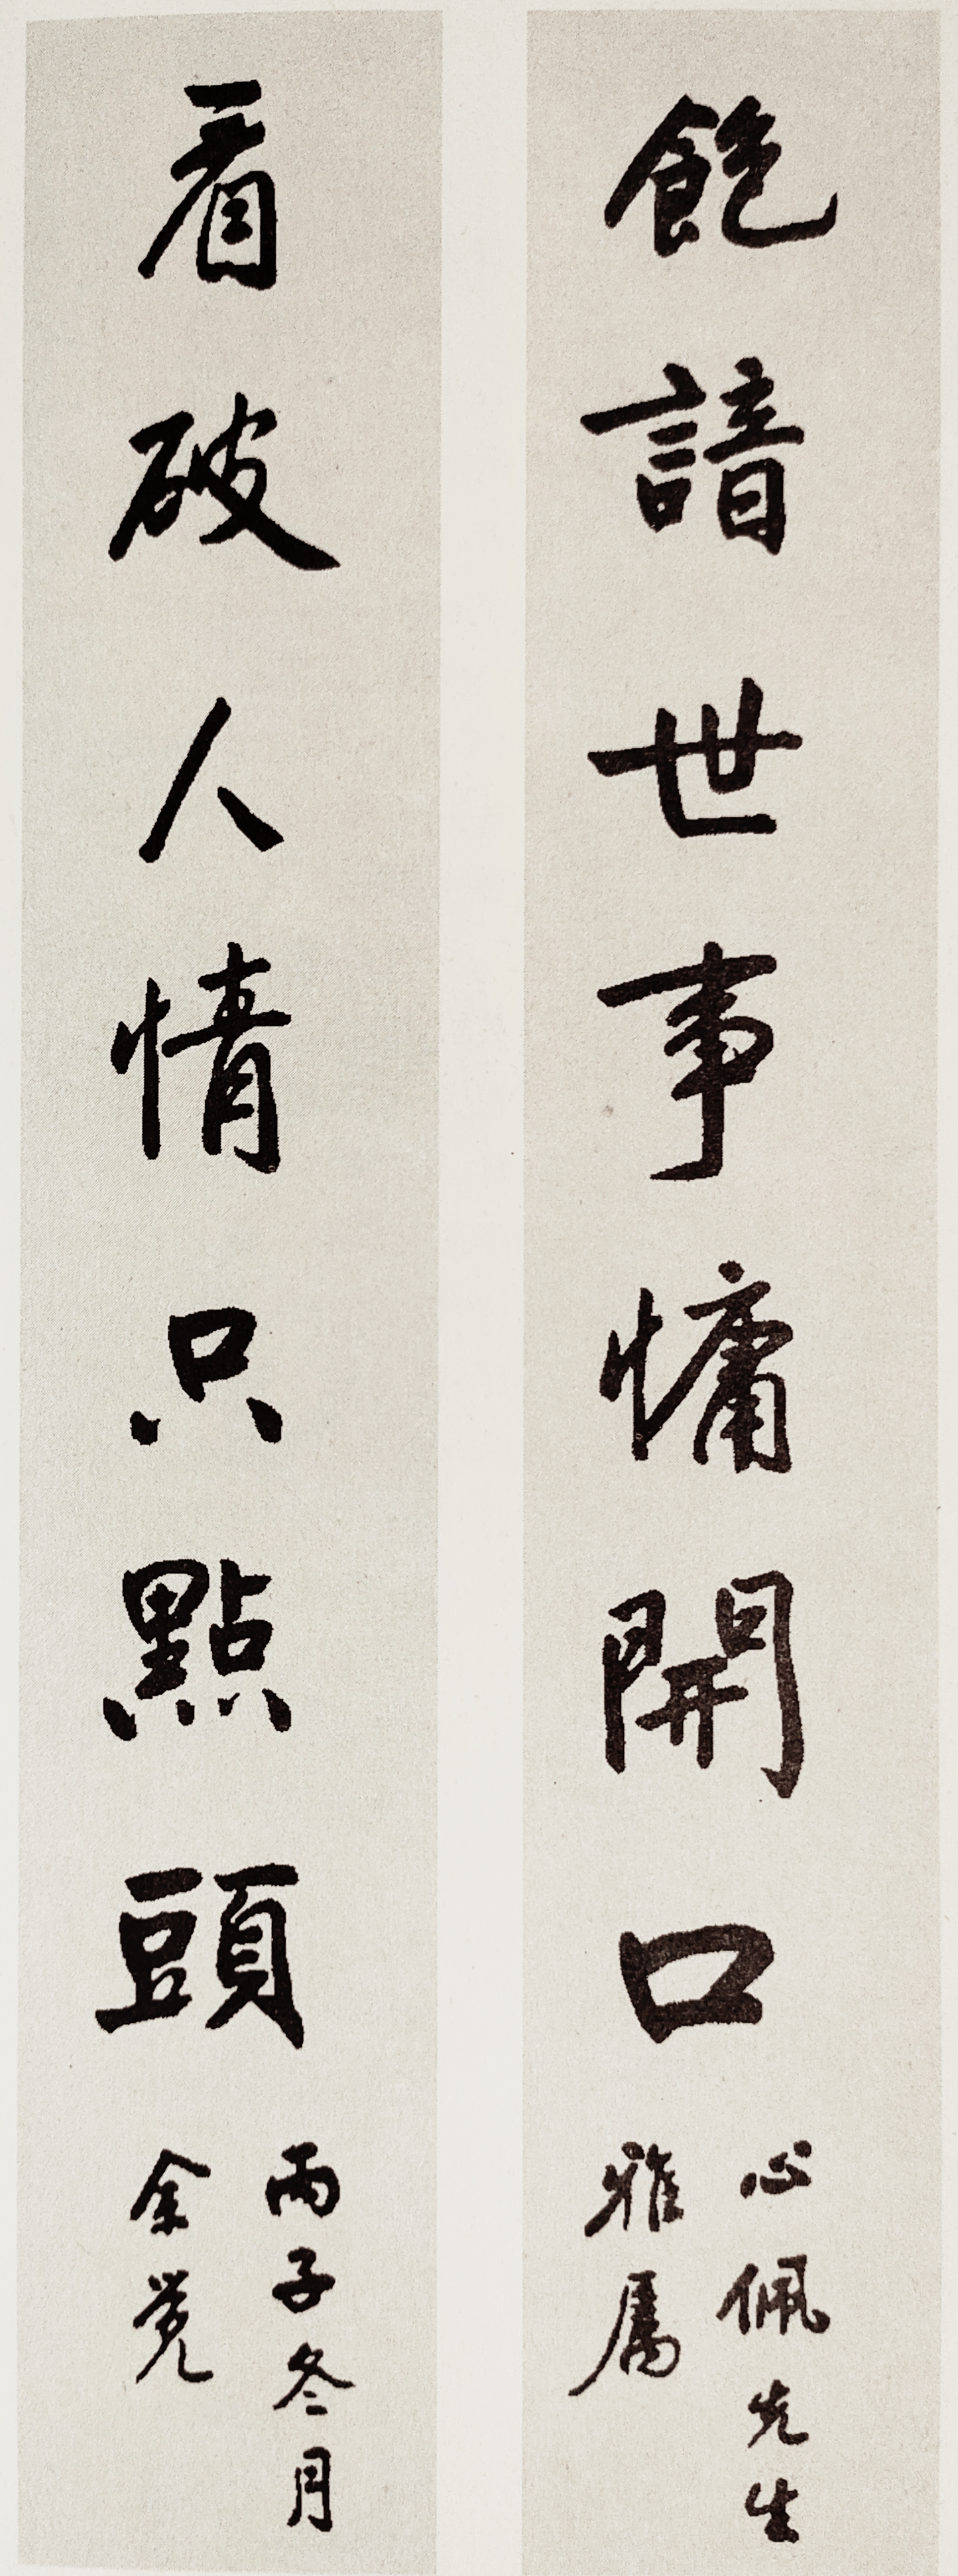 飽諳世事慵開口
心佩先生
雅屬
看破人情只點頭
丙子冬月
余覺